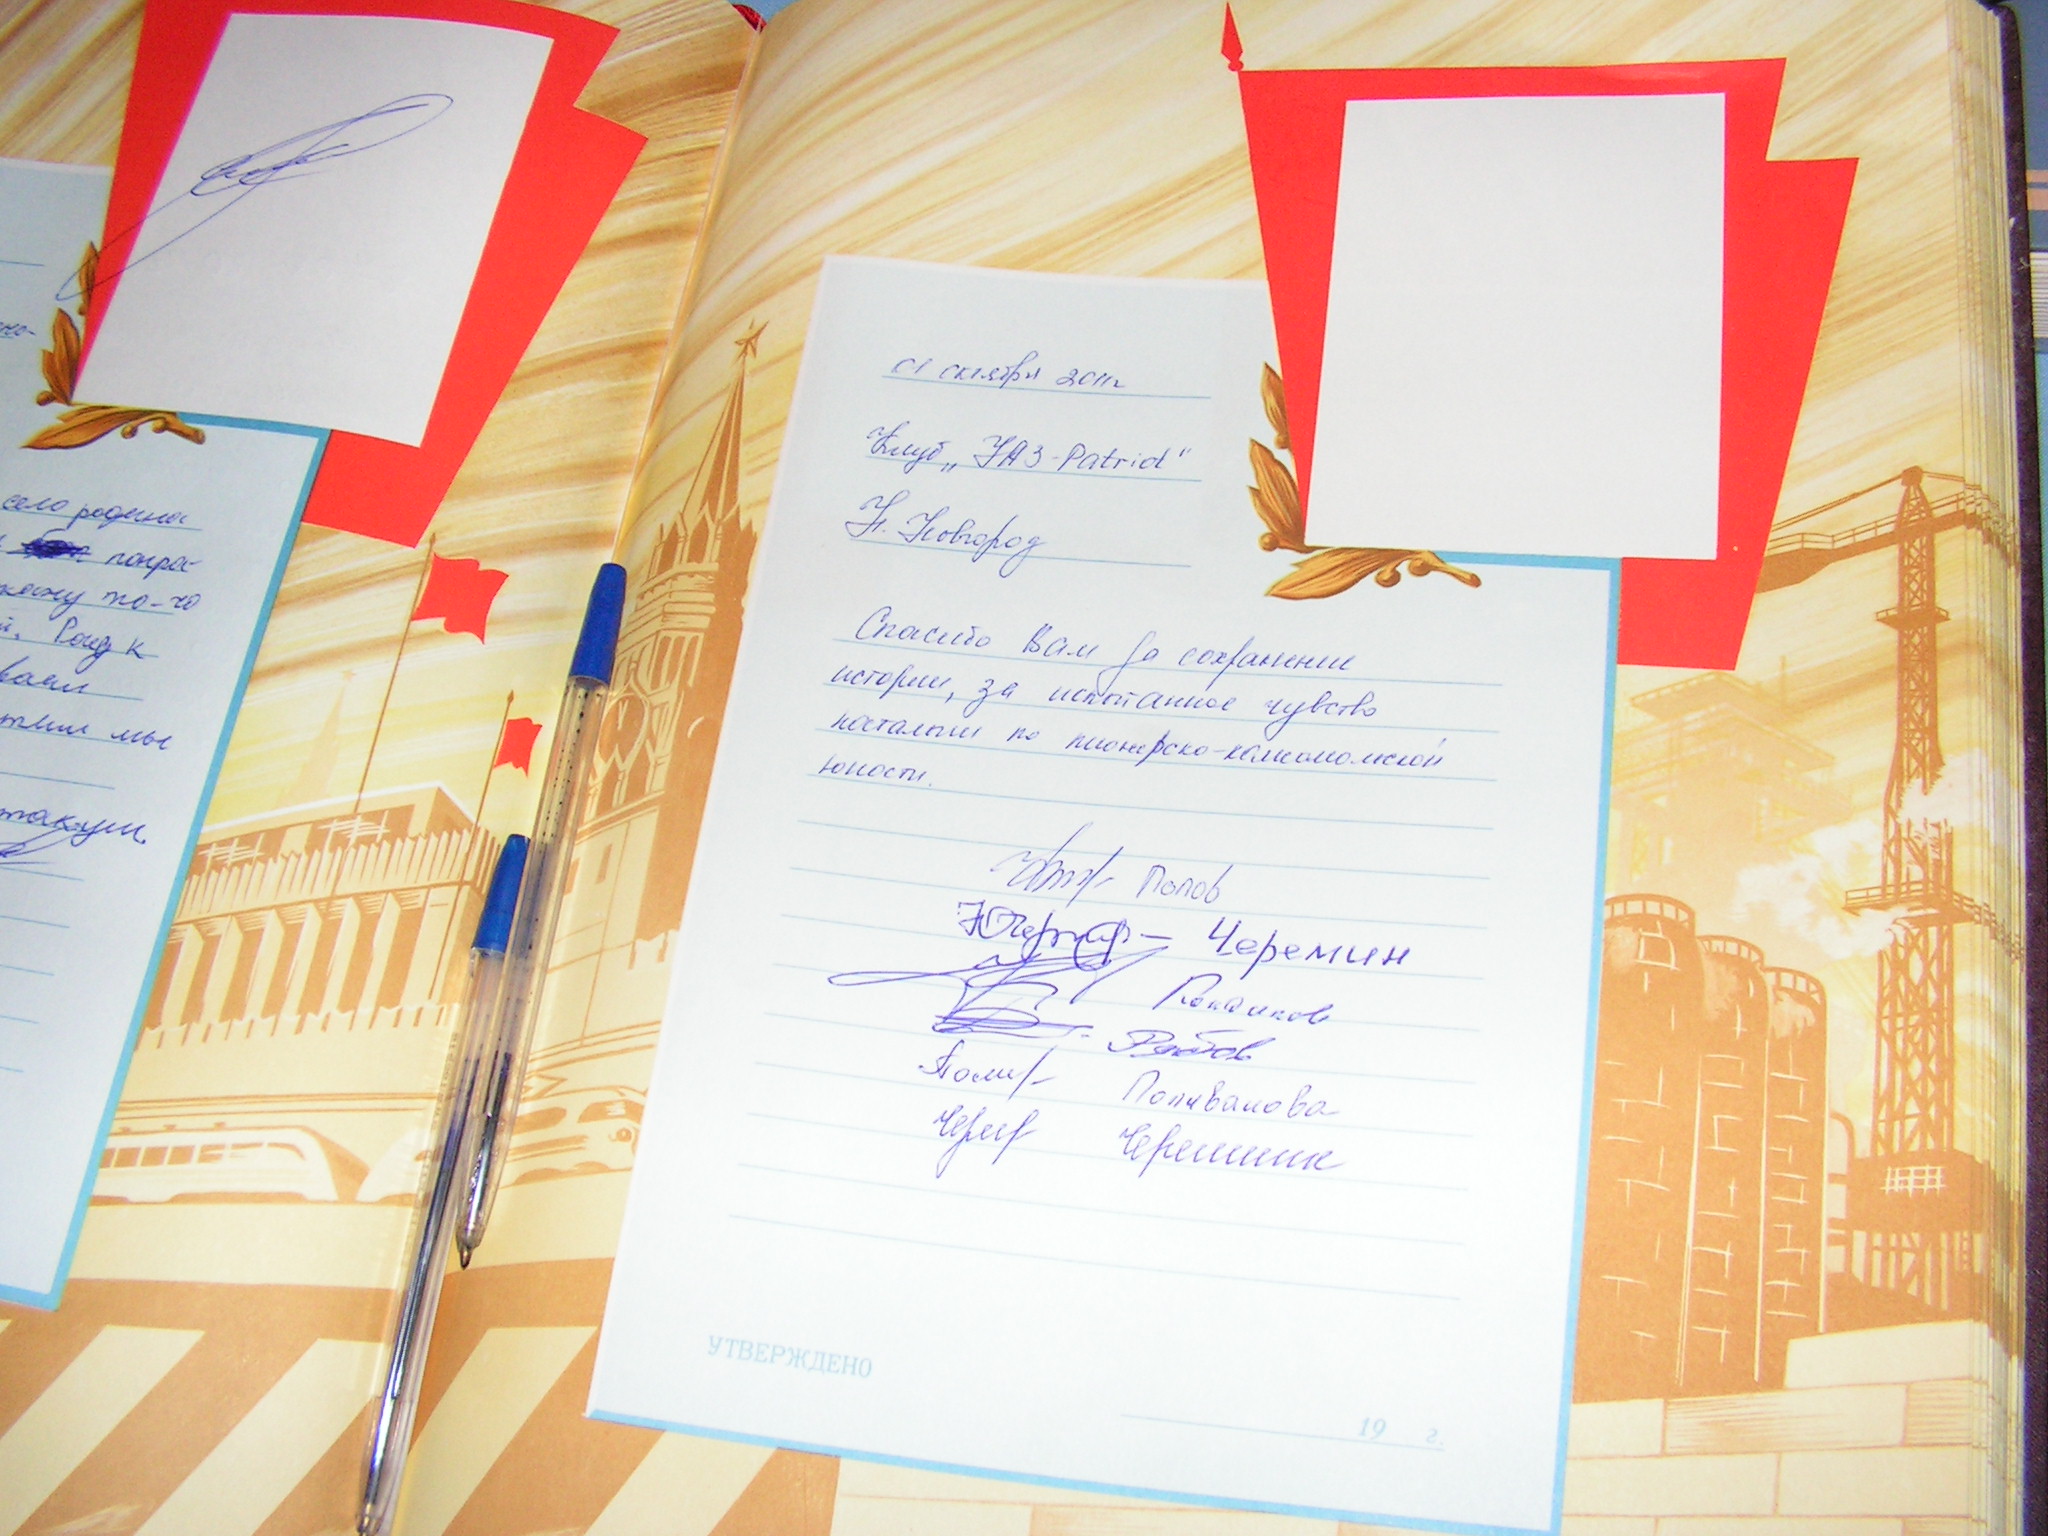 село родина
попра-
кажу то-то
Роид к
ваем
мы
01 октября 2011г
Клуб „УАЗ-Patriot"
Н. Новгород
Спасибо Вам за сохранение
истории, за испытанное чувство
ностальгии по пионерско-комсомольской
юности.
Попов
Черемин
Рябов
Поливанова
Черемини
УТВЕРЖДЕНО
19 г.